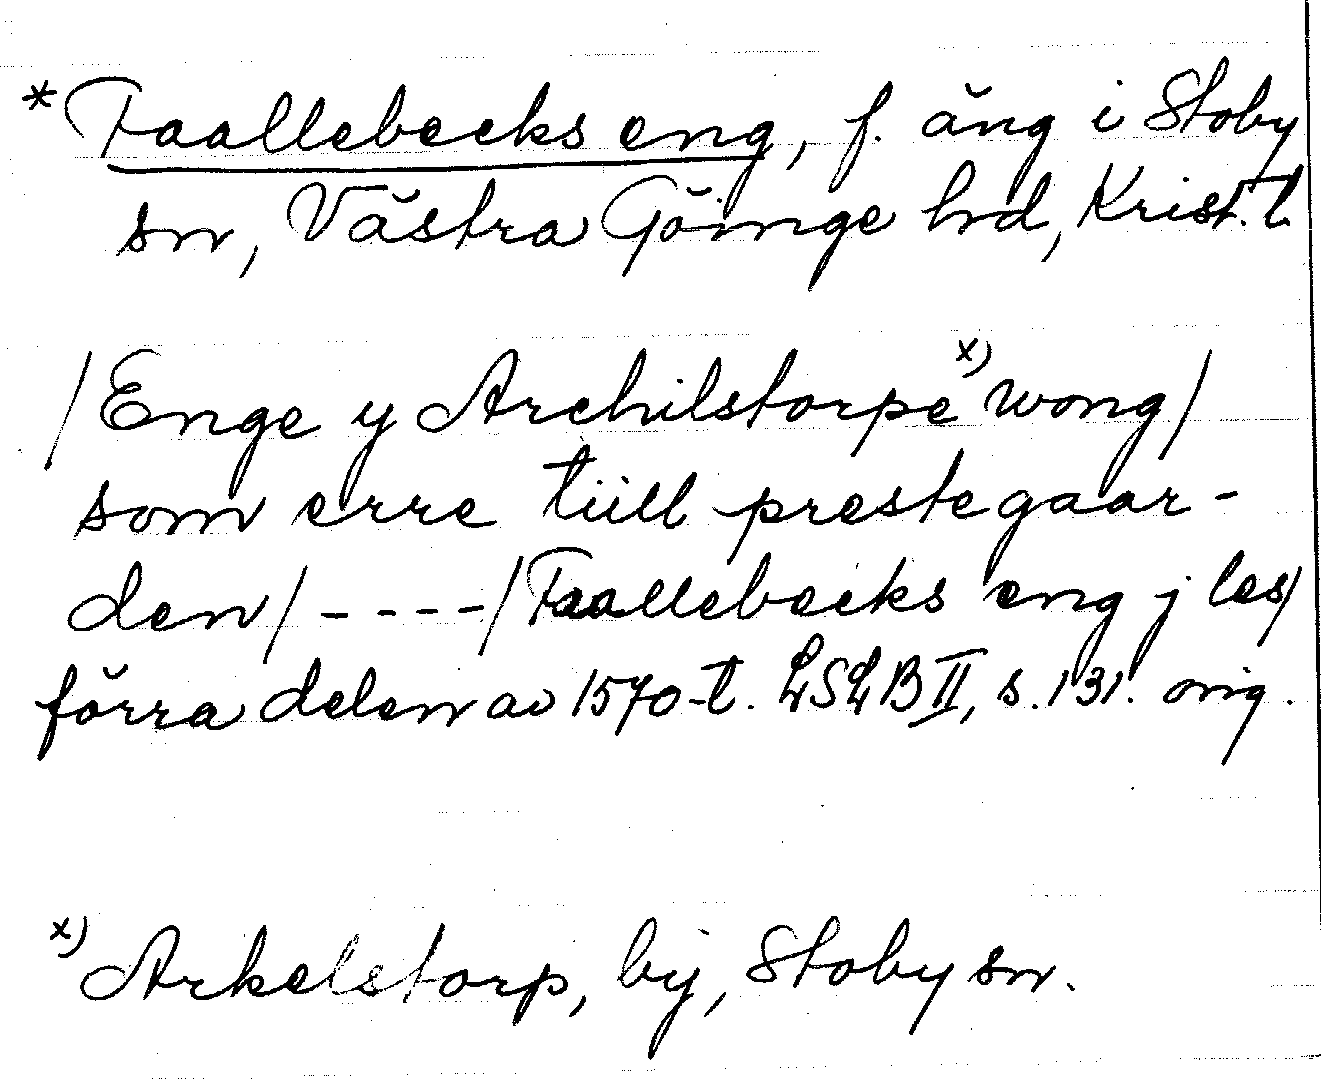 * Faallebecks eng, f. äng i Stoby
sn, Västra Göinge hd, Krist. l.
/Enge y Archilstorpe x) wong/
som erre tiill prestegaar-
den/ - - - - /Faallebecks eng j les/
förra delen av 1570-t. LSLB II, s. 131. orig.
x) Arkelstorp, by, Stoby sn.